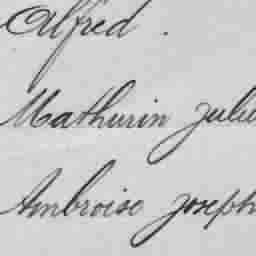 Alfred.
Mathurin Juliu
Ambroise Joseph